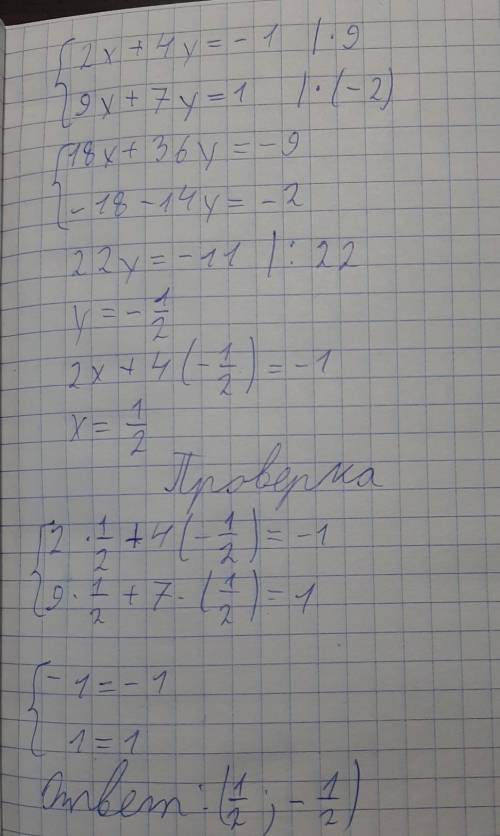 {2x + 4y = -1 | · 9
{9x + 7y = 1 | · (-2)
{18x + 36y = -9
{-18 - 14y = -2
22y = -11 | : 22
y = - 1/2
2x + 4(- 1/2) = -1
x = 1/2
Проверка
{2 · 1/2 + 4(- 1/2) = -1
{9 · 1/2 + 7 · (1/2) = 1
{- 1 = - 1
1 = 1
ответ: (1/2 ; - 1/2)